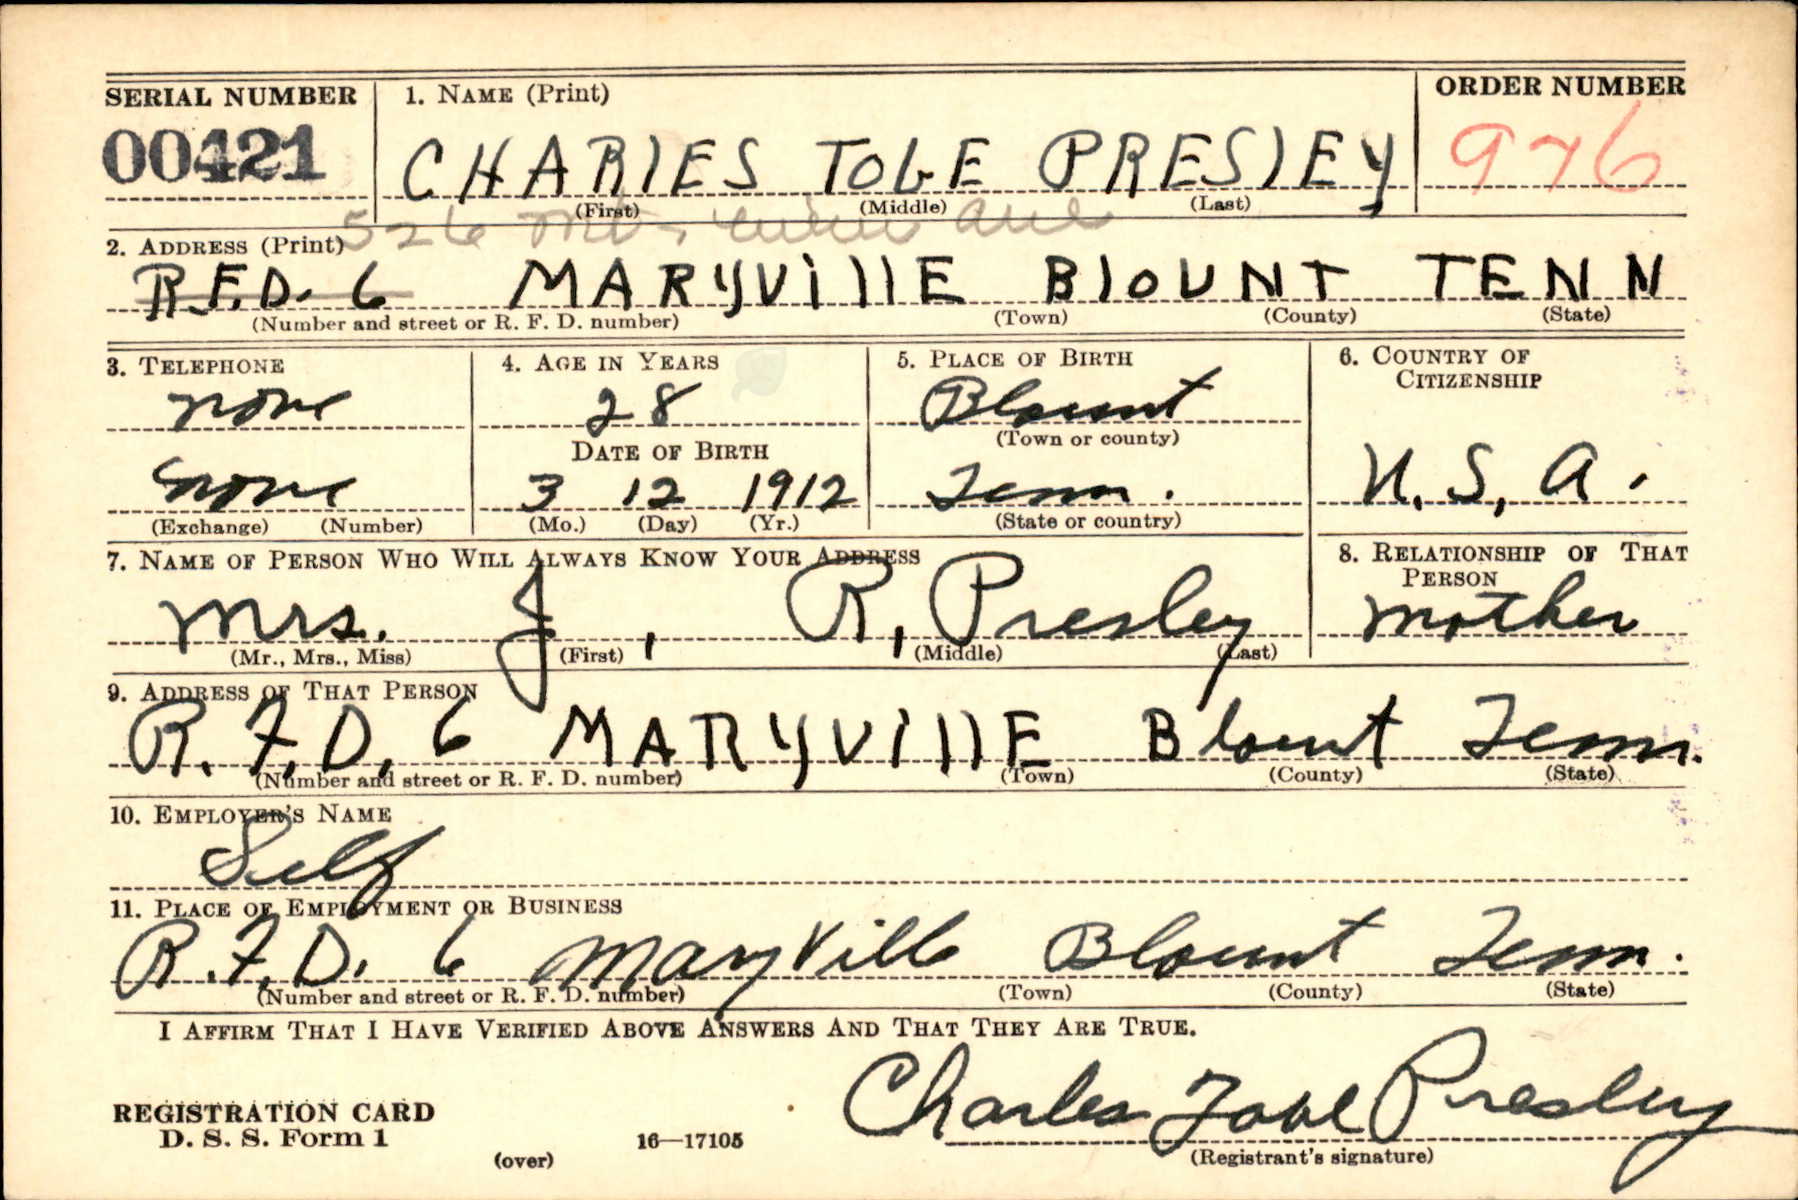 SERIAL NUMBER 1. NAME (Print) ORDER NUMBER
00421 CHARlES TOLE PRESlEy 976
(First) (Middle) (Last)
526 Mt. ave
2. ADDRESS (Print)
R.F.D. 6 MARYVillE BlOUNT TENN
(Number and street or R. F. D. number) (Town) (County) (State)
3. TELEPHONE 4. AGE IN YEARS 5. PLACE OF BIRTH 6. COUNTRY OF CITIZENSHIP
none 28 Blount
DATE OF BIRTH (Town or county)
none 3 12 1912 Tenn. U.S.A.
(Exchange) (Number) (Mo.) (Day) (Yr.) (State or country)
7. NAME OF PERSON WHO WILL ALWAYS KNOW YOUR ADDRESS 8. RELATIONSHIP OF THAT PERSON
Mrs. J, R, Presley Mother
(Mr., Mrs., Miss) (First) (Middle) (Last)
9. ADDRESS OF THAT PERSON
R.F.D. 6 MARYVillE Blount Tenn.
(Number and street or R. F. D. number) (Town) (County) (State)
10. EMPLOYER'S NAME
Self
11. PLACE OF EMPLOYMENT OR BUSINESS
R.F.D. 6 Maryville Blount Tenn.
(Number and street or R. F. D. number) (Town) (County) (State)
I AFFIRM THAT I HAVE VERIFIED ABOVE ANSWERS AND THAT THEY ARE TRUE.
REGISTRATION CARD Charles Presley
D. S. S. Form 1 16—17105
(over) (Registrant's signature)